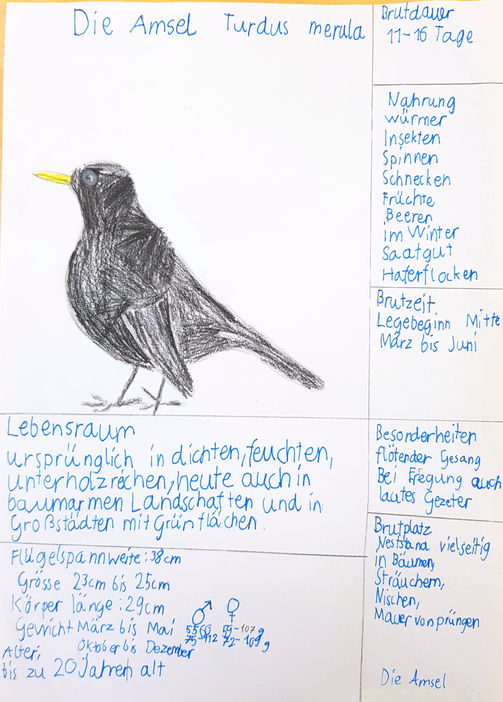 Die Amsel Turdus merula
Brutdauer
11-16 Tage
Nahrung
würmer
Insekten
Spinnen
Schnecken
Früchte
Beeren
im Winter
Saatgut
Haferflocken
Brutzeit
Legebeginn Mitte
März bis Juni
Lebensraum
ursprünglich in dichten, feuchten,
unterholzrechen, heute auch in
baumarmen Landschaften und in
Großstädten mit Grünflächen.
Besonderheiten
flötender Gesang
Bei Eregung auch
lautes Gezeter
Brutplatz
Neststand vielseitig
in Bäumen,
Sträuchern,
Nischen,
Mauervorsprüngen
Flügelspannweite: 38cm
Grösse 23cm bis 25cm
Körper länge: 29cm
♂ ♀
Gewicht März bis Mai 59-107g
Oktober bis Dezember 75-112 72-109g
Alter,
bis zu 20 Jahren alt
Die Amsel